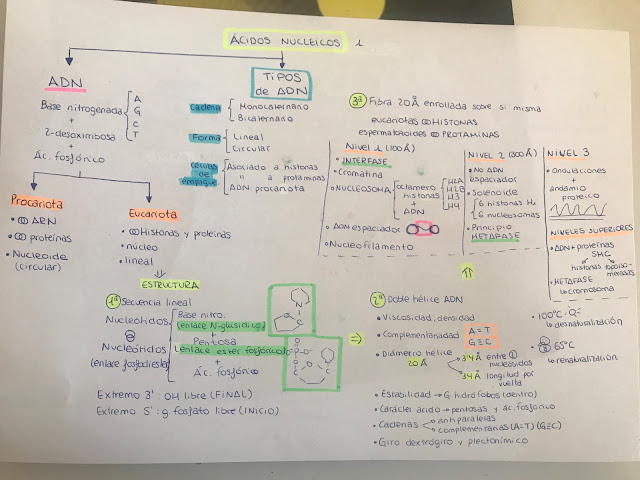 ÁCIDOS NUCLEICOS
ADN
Base nitrogenada
A
G
C
T
+
2-desoxirribosa
+
Ác. fosfórico
Procariota
ARN
proteínas
Nucleoide
(circular)
Eucariota
Histonas y proteínas
núcleo
lineal
TIPOS
de ADN
Cadena
Monocatenario
Bicatenario
Forma
Lineal
Circular
empaque
Asociado a histonas
" a protaminas
ADN procariota
3ª Fibra 20Å enrollada sobre si misma
eucariotas HISTONAS
espermatozoides PROTAMINAS
NIVEL 1 (100Å)
INTERFASE
Cromatina
NUCLEOSOMA
octámero
histonas
+
ADN
H2A
H2B
H3
H4
ADN espaciador
Nucleofilamento
NIVEL 2 (300Å)
NO ADN
espaciador
Solenoide
6 histonas H1
6 nucleosomas
Principio
METAFASE
NIVEL 3
Ondulaciones
+
andamio
proteico
NIVELES SUPERIORES
ADN + proteínas
SMC
histonas
METAFASE
cromosoma
ESTRUCTURA
1ª Secuencia lineal
Nucleótidos
Nucleótidos
(enlace fosfodiester)
Base nitro.
(enlace N-glusídico)
Pentosa
(enlace ester fosfórico)
+
Ác. fosfórico
N
C
O
O
P
O
C
Extremo 3': OH libre (FINAL)
Extremo 5': g. fosfato libre (INICIO)
2ª Doble hélice ADN
Viscosidad, densidad
Complementariedad
A=T
G≡C
Diámetro hélice
20 Å
3'4Å entre
nucleósidos
34Å longitud por
vuelta
Estabilidad → G. hidrófobos (dentro)
Carácter ácido → pentosas y ác. fosfórico
Cadenas
antiparalelas
complementarias (A=T) (G≡C)
Giro dextrógiro y plectonímico
100ºC
desnaturalización
65ºC
renaturalización